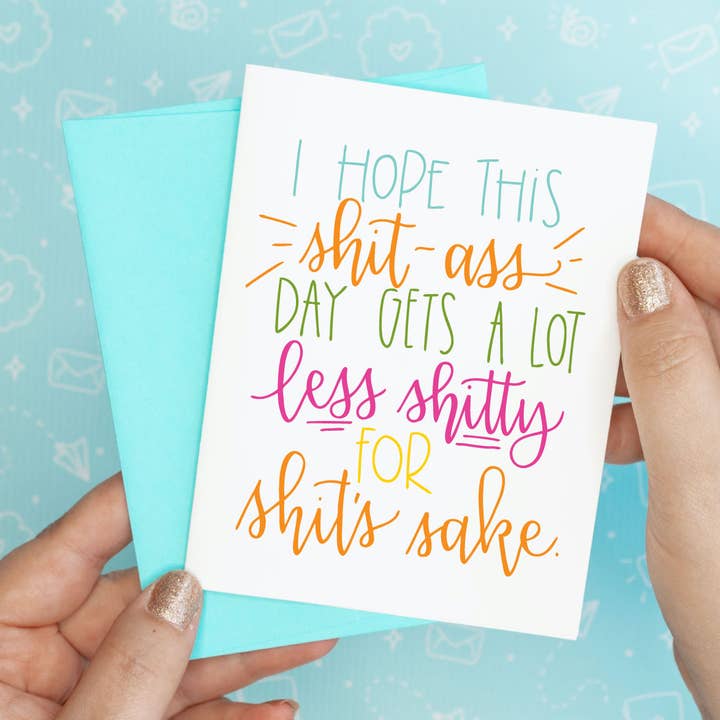 I HOPE THIS
shit-ass
DAY GETS A LOT
less shitty
FOR
shit's sake.